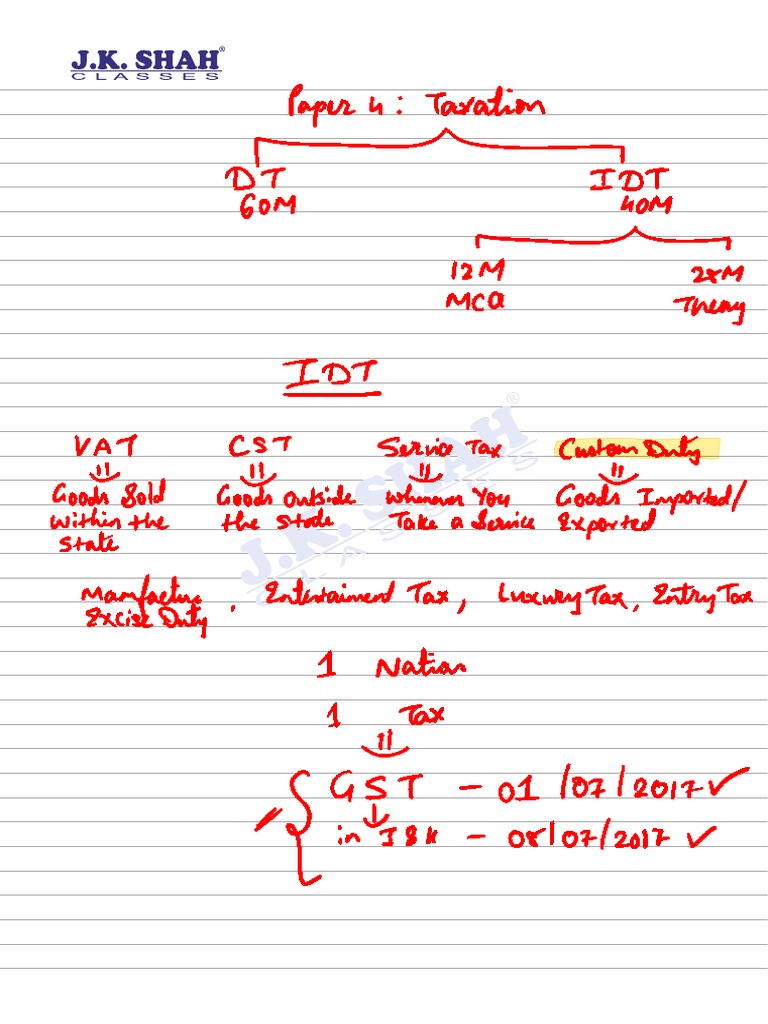 J.K. SHAH®
CLASSES
Paper 4 : Taxation
DT IDT
60M 40M
12M 28M
MCQ Theory
IDT
J.K. SHAH®
CLASSES
VAT CST Service Tax Custom Duty
Goods Sold Goods Outside Whenever You Goods Imported/
within the the State Take a Service Exported
State
Manufacture , Entertaiment Tax, Luxury Tax, Entry Tax
Excise Duty
1 Nation
1 Tax
GST - 01/07/2017 ✓
in J&K - 08/07/2017 ✓